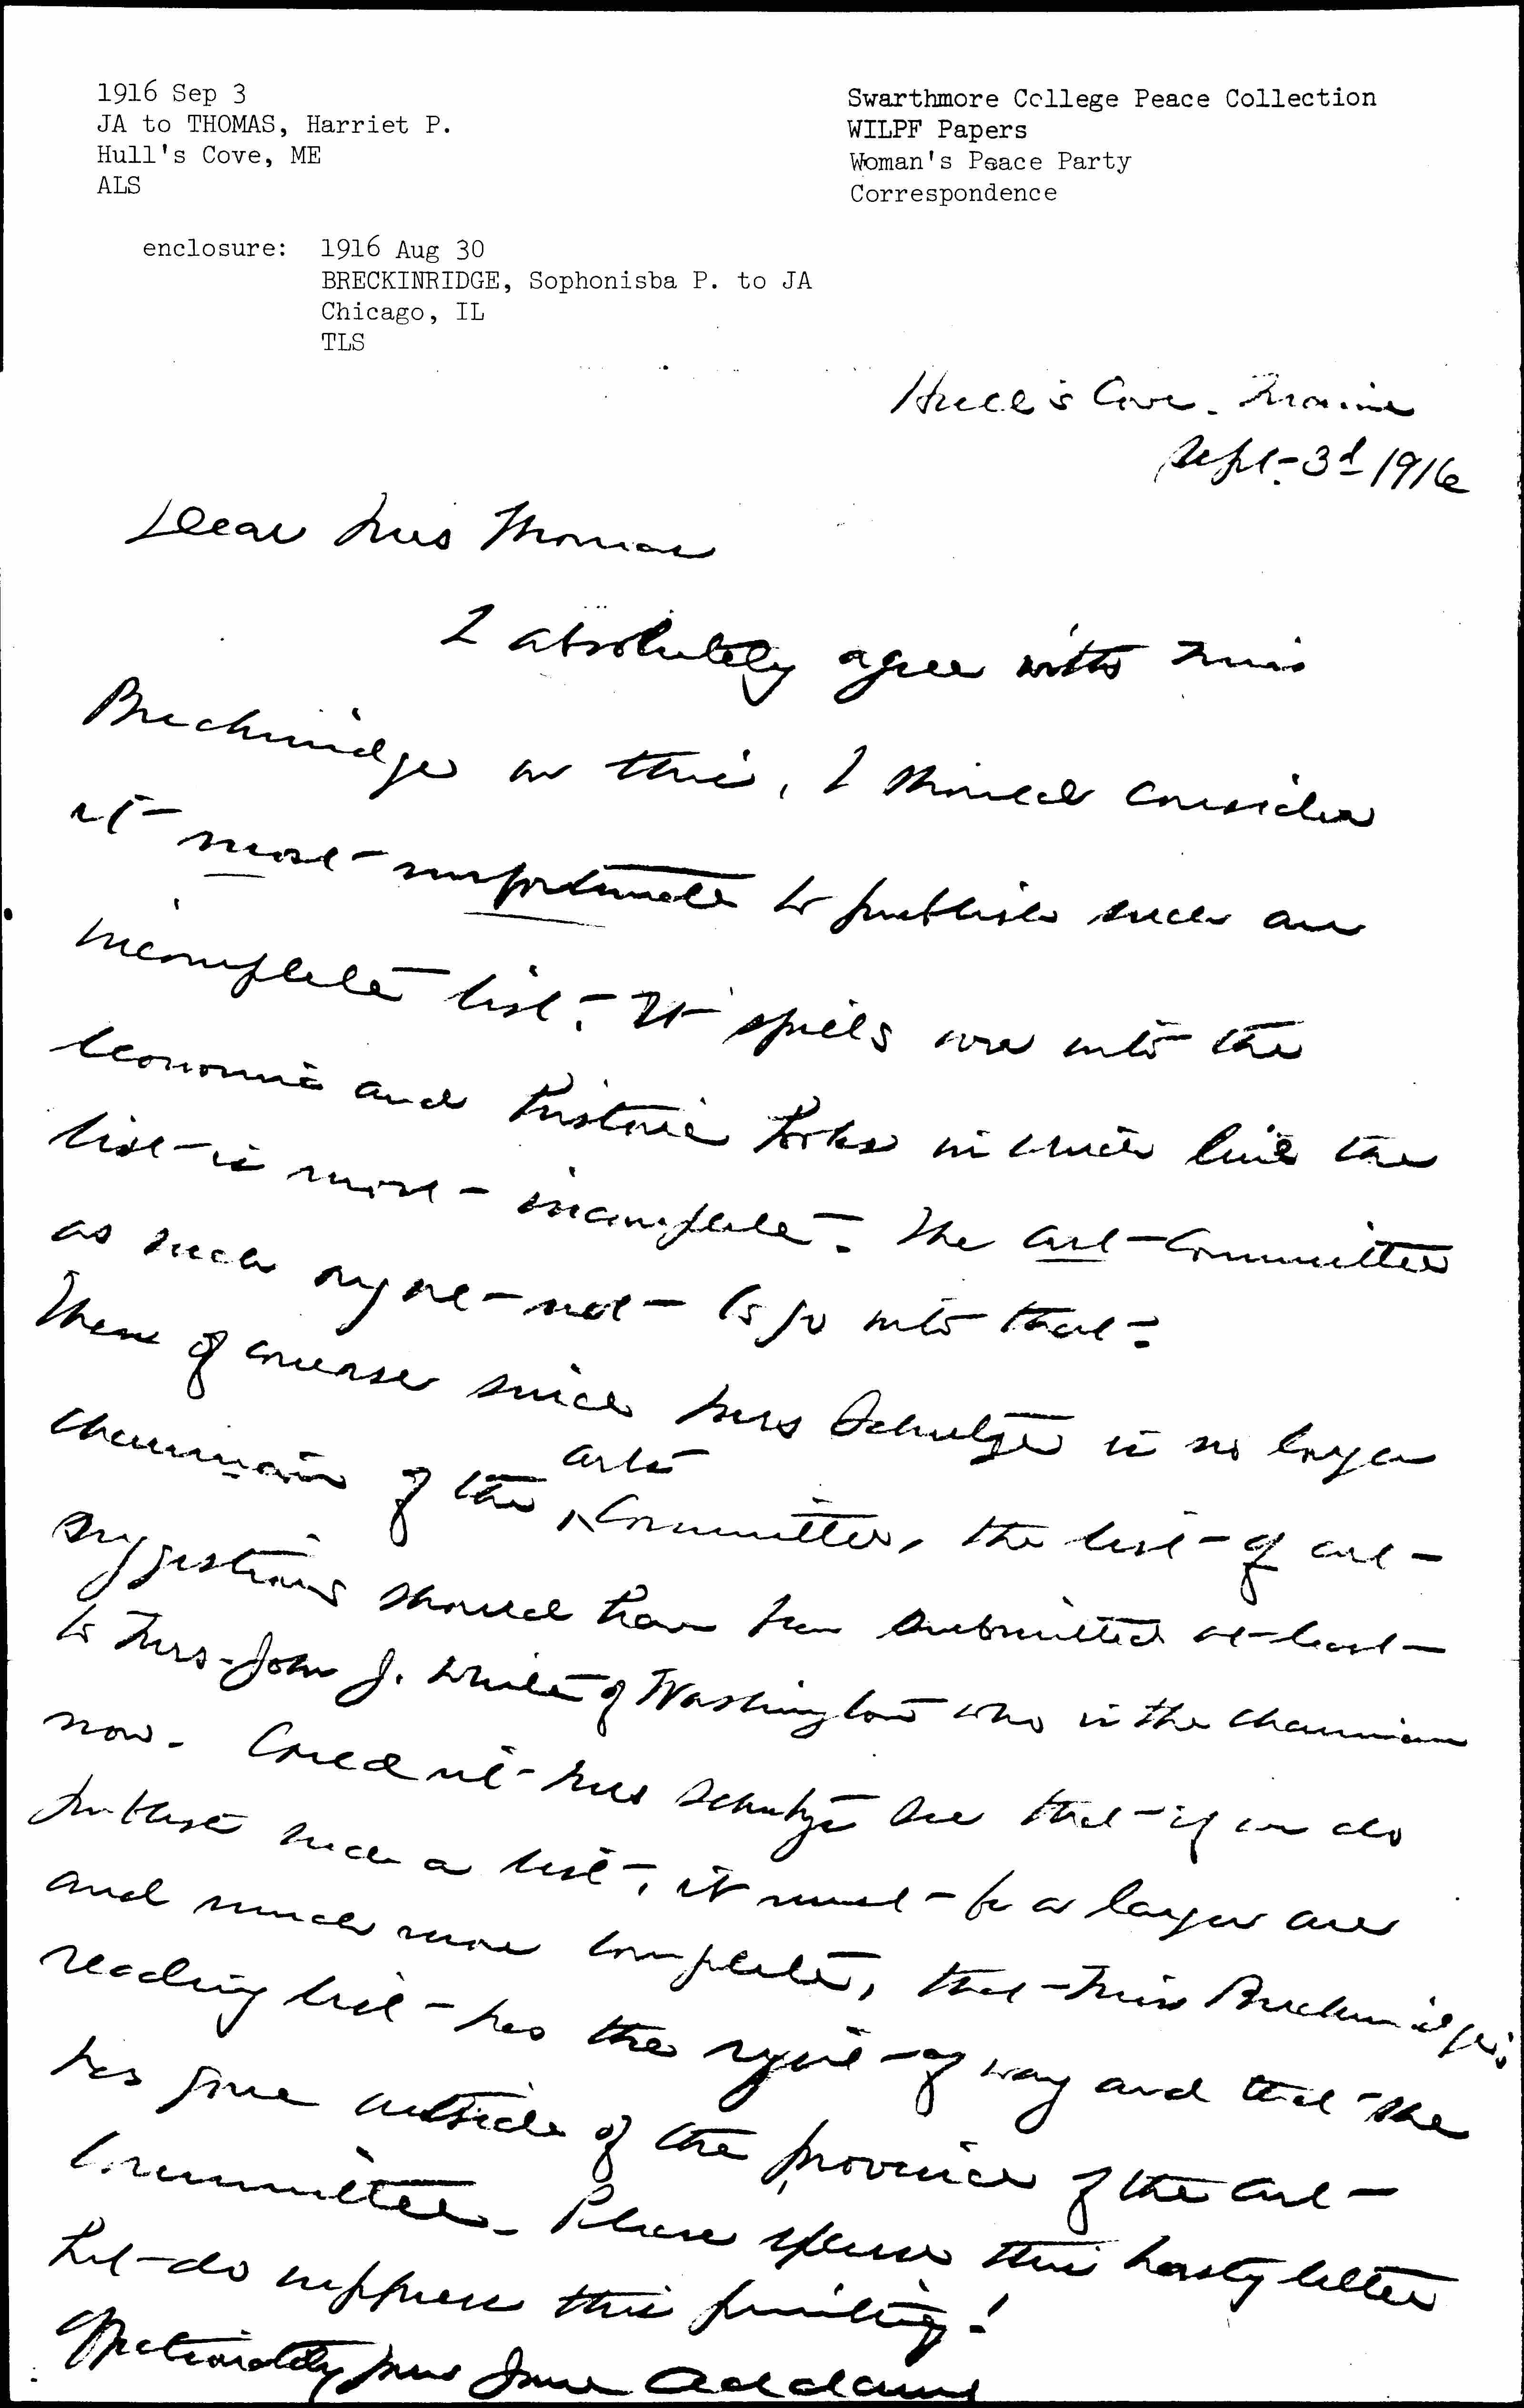 1916 Sep 3
JA to THOMAS, Harriet P.
Hull's Cove, ME
ALS
Swarthmore College Peace Collection
WILPF Papers
Woman's Peace Party
Correspondence
enclosure: 1916 Aug 30
BRECKINRIDGE, Sophonisba P. to JA
Chicago, IL
TLS
Hull's Cove. Maine
Sept. 3d 1916
Dear Mrs Thomas
I absolutely agree with Miss
Breckinridge in this, I should consider
it most unfortunate to publish such an
incomplete list. It spills over into the
economic and historic books in which line the
list is most incomplete. The art Committee
as such ought not to go into that.
Then of course since Mrs Schultze is no longer
chairman of the arts Committee, the list of art
suggestions should have been submitted at least
to Mrs. John J. White of Washington who is the chairman
now. Could not Mrs Schultze see that if we do
publish such a list, it must be a larger one
and much more complete, that Miss Breckinridge's
reading list has the right of way and that she
has gone outside of the province of the art
Committee. Please excuse this hasty letter
but do suppress this printing!
Affectionately yours Jane Addams